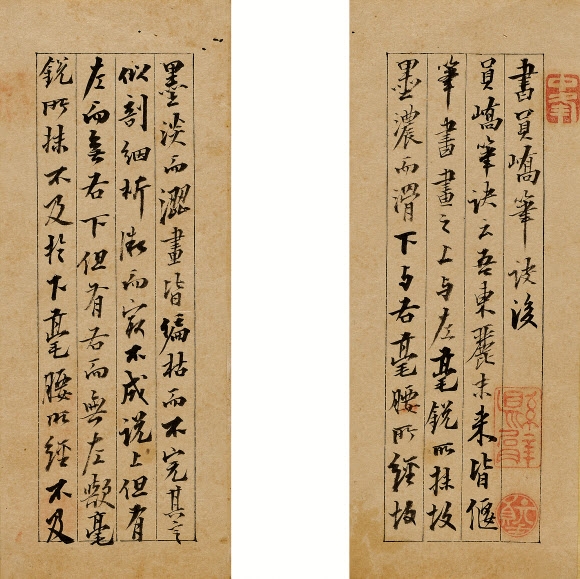 書員嶠筆訣後
員嶠筆訣云吾東麗末來皆偃
筆書畫之上与左毫銳所抹故
墨濃而滑下与右毫腰所經故
墨淡而澀畫皆偏枯而不完其言
似剖細析微而最不成說上但有
左而無右下但有右而無左歟毫
銳所抹不及於下毫腰所經不及